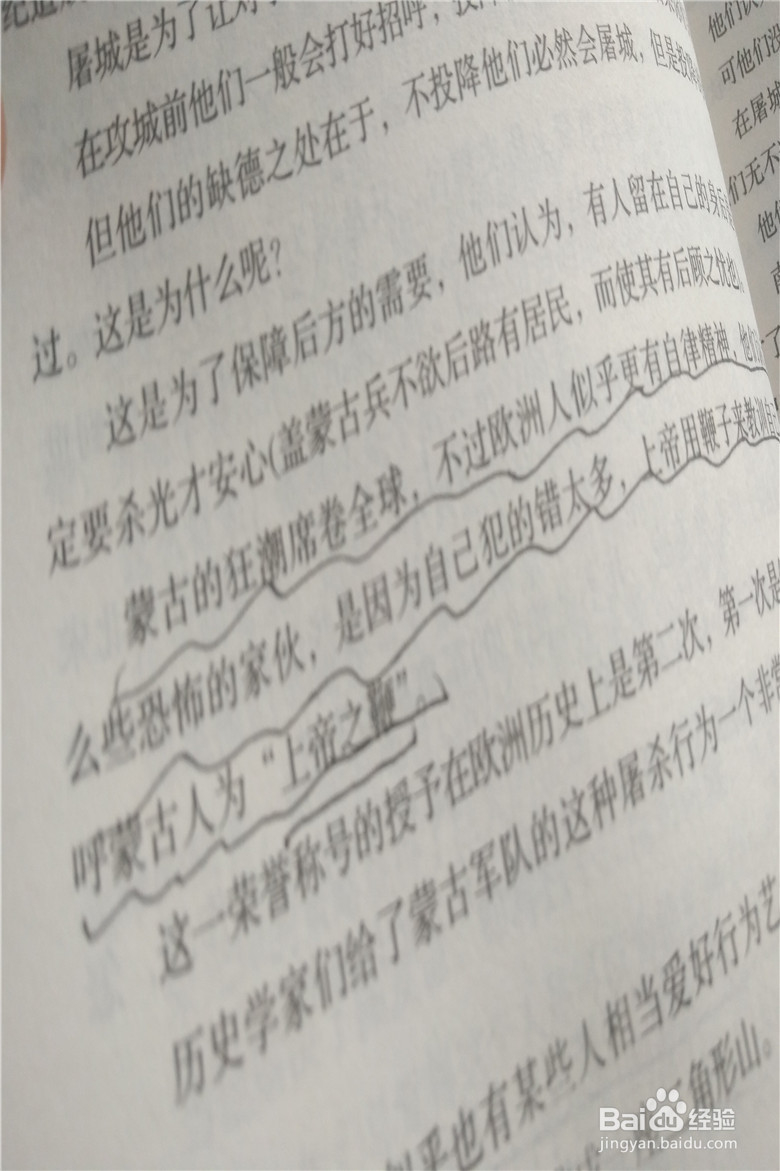 屠城是为了让对
在攻城前他们一般会打好招呼，投降
但他们的缺德之处在于，不投降他们必然会屠城，但是投降
过。这是为什么呢？
这是为了保障后方的需要，他们认为，有人留在自己的身后
定要杀光才安心(盖蒙古兵不欲后路有居民，而使其有后顾之忧也
蒙古的狂潮席卷全球，不过欧洲人似乎更有自律精神，他们
么些恐怖的家伙，是因为自己犯的错太多，上帝用鞭子来教训自己
呼蒙古人为“上帝之鞭”。
这一荣誉称号的授予在欧洲历史上是第二次，第一次是
历史学家们给了蒙古军队的这种屠杀行为一个非常
似乎也有某些人相当爱好行为艺
三角形山。
他们认
可他们没
在屠城
们无不
他们
Baidu 经验
jingyan.baidu.com